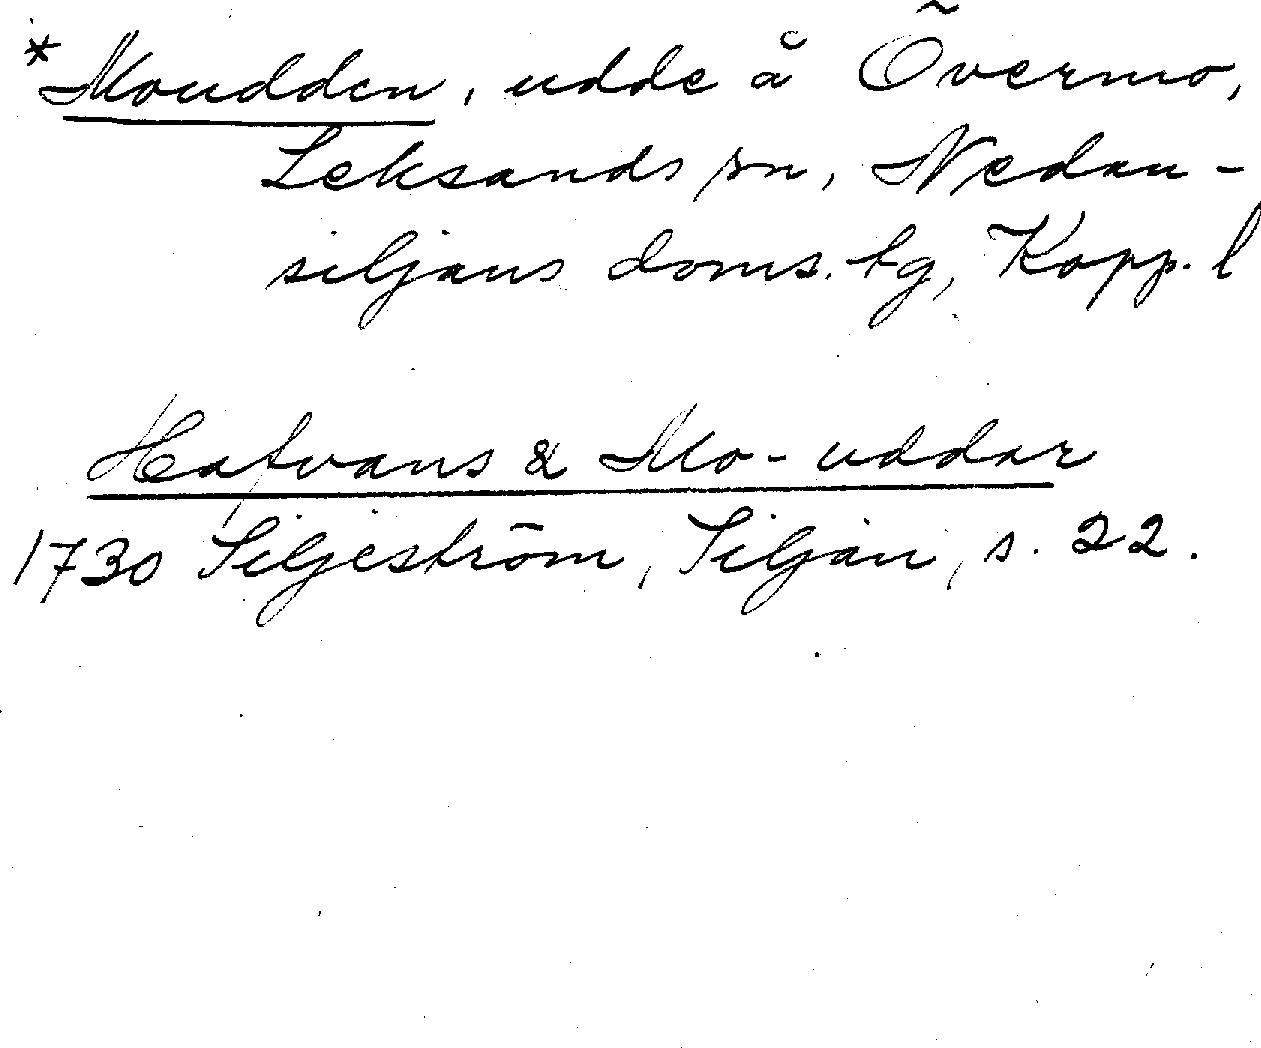 *Moudden, udde å Övermo,
Leksands sn, Nedan-
siljans doms. tg, Kopp. l
Hafvans & Mo-uddar
1730 Siljeström, Siljan, s. 22.